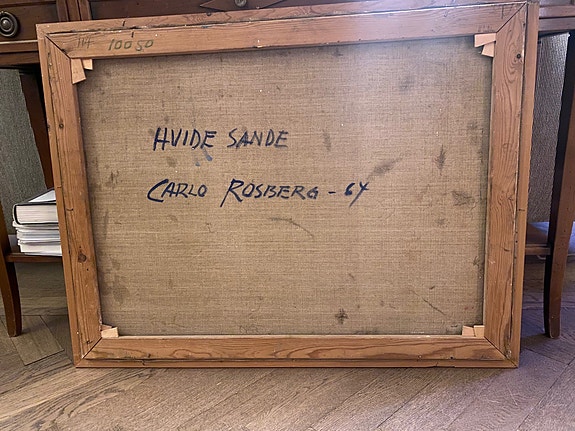 114 10050
HVIDE SANDE
CARLO ROSBERG - 64